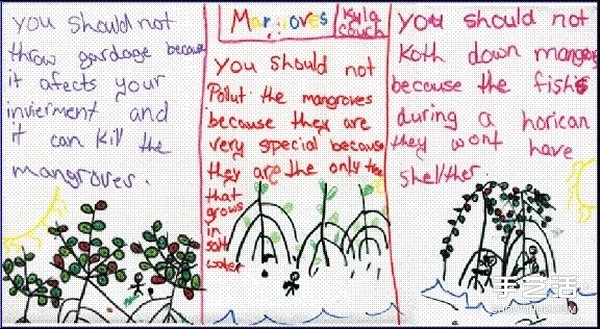 you should not
throw gardage because
it afects your
invierment and
it can kill the
mangroves.
Mangroves
Kyla
Couch
you should not
Pollut the mangroves
because they are
very special because
they are the only tree
that
grows
in
salt
water
you should not
Koth down
because the fishis
during a horican
they wont have
shellther.
手艺活